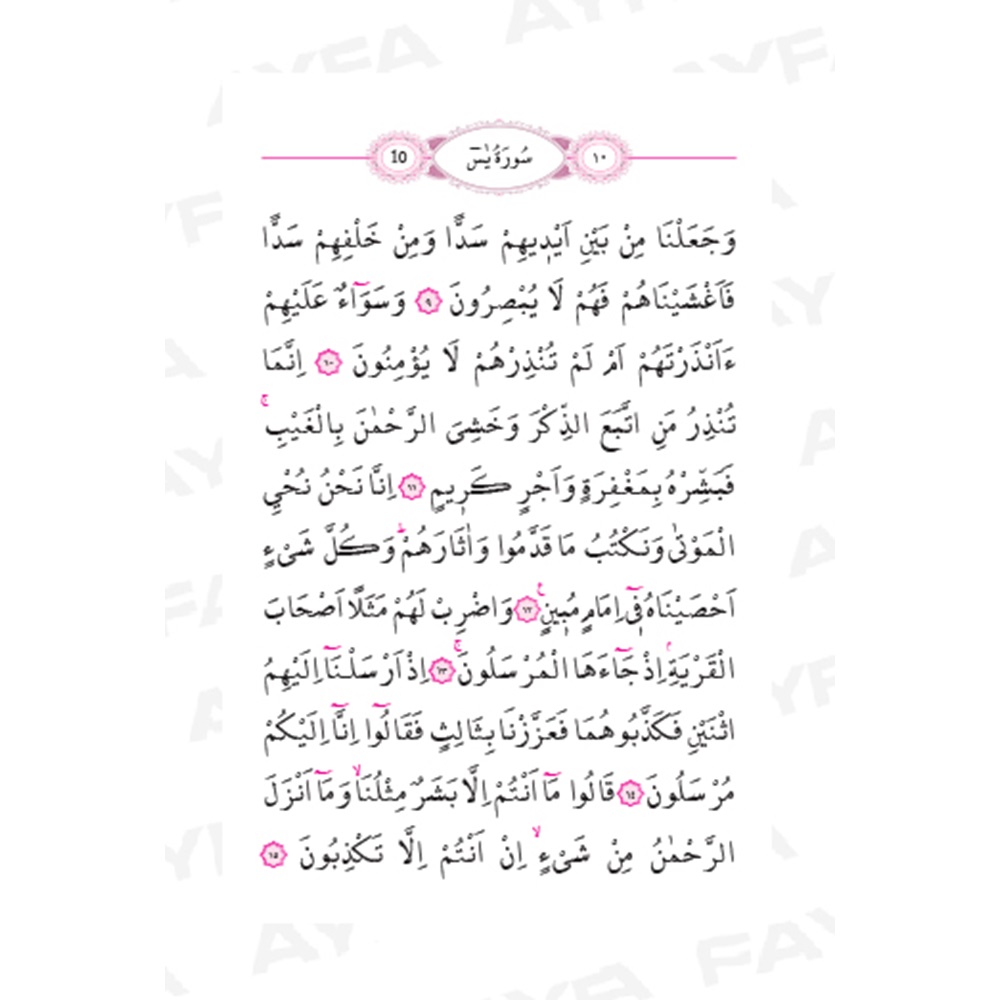 AYFA
10 سُورَةُ يٰسٓ ١٠
وَجَعَلْنَا مِنْ بَيْنِ اَيْدٖيهِمْ سَدًّا وَمِنْ خَلْفِهِمْ سَدًّا
فَاَغْشَيْنَاهُمْ فَهُمْ لَا يُبْصِرُونَ ٩ وَسَوَٓاءٌ عَلَيْهِمْ
ءَاَنْذَرْتَهُمْ اَمْ لَمْ تُنْذِرْهُمْ لَا يُؤْمِنُونَ ١٠ اِنَّمَا
تُنْذِرُ مَنِ اتَّبَعَ الذِّكْرَ وَخَشِىَ الرَّحْمٰنَ بِالْغَيْبِۚ
فَبَشِّرْهُ بِمَغْفِرَةٍ وَاَجْرٍ كَرٖيمٍ ١١ اِنَّا نَحْنُ نُحْيِ
الْمَوْتٰى وَنَكْتُبُ مَا قَدَّمُوا وَاٰثَارَهُمْۜ وَكُلَّ شَىْءٍ
اَحْصَيْنَاهُ فٖٓى اِمَامٍ مُبٖينٍۚ ١٢ وَاضْرِبْ لَهُمْ مَثَلًا اَصْحَابَ
الْقَرْيَةِۢ اِذْ جَٓاءَهَا الْمُرْسَلُونَۚ ١٣ اِذْ اَرْسَلْنَٓا اِلَيْهِمُ
اثْنَيْنِ فَكَذَّبُوهُمَا فَعَزَّزْنَا بِثَالِثٍ فَقَالُٓوا اِنَّٓا اِلَيْكُمْ
مُرْسَلُونَ ١٤ قَالُوا مَٓا اَنْتُمْ اِلَّا بَشَرٌ مِثْلُنَاۙ وَمَٓا اَنْزَلَ
الرَّحْمٰنُ مِنْ شَىْءٍۙ اِنْ اَنْتُمْ اِلَّا تَكْذِبُونَ ١٥